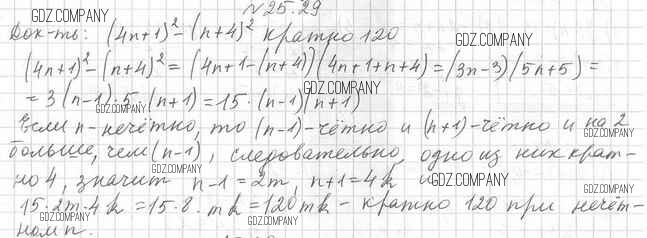 №25.29
GDZ.COMPANY
Док-ть: (4n+1)² - (n+4)² кратно 120
GDZ.COMPANY
(4n+1)² - (n+4)² = (4n+1-(n+4))(4n+1+n+4) = (3n-3)(5n+5) =
GDZ.COMPANY
= 3(n-1)·5·(n+1) = 15·(n-1)(n+1)
GDZ.COMPANY
Если n-нечётно, то (n-1)-чётно и (n+1)-чётно и на 2
GDZ.COMPANY
больше, чем (n-1), следовательно, одно из них крат-
GDZ.COMPANY
но 4, значит n-1=2m, n+1=4k и
GDZ.COMPANY
GDZ.COMPANY
15·2m·4k = 15·8·mk = 120mk - кратно 120 при нечёт-
GDZ.COMPANY
GDZ.COMPANY
ном n.